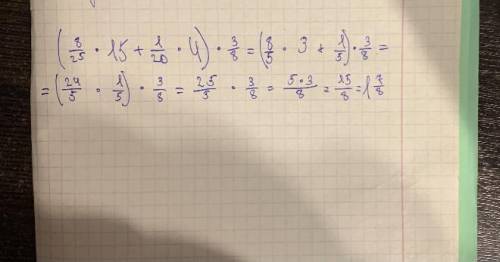 (8/25 · 15 + 1/20 · 4) · 3/8 = (8/5 · 3 + 1/5) · 3/8 =
= (24/5 · 1/5) · 3/8 = 25/5 · 3/8 = 5·3/8 = 15/8 = 1 7/8